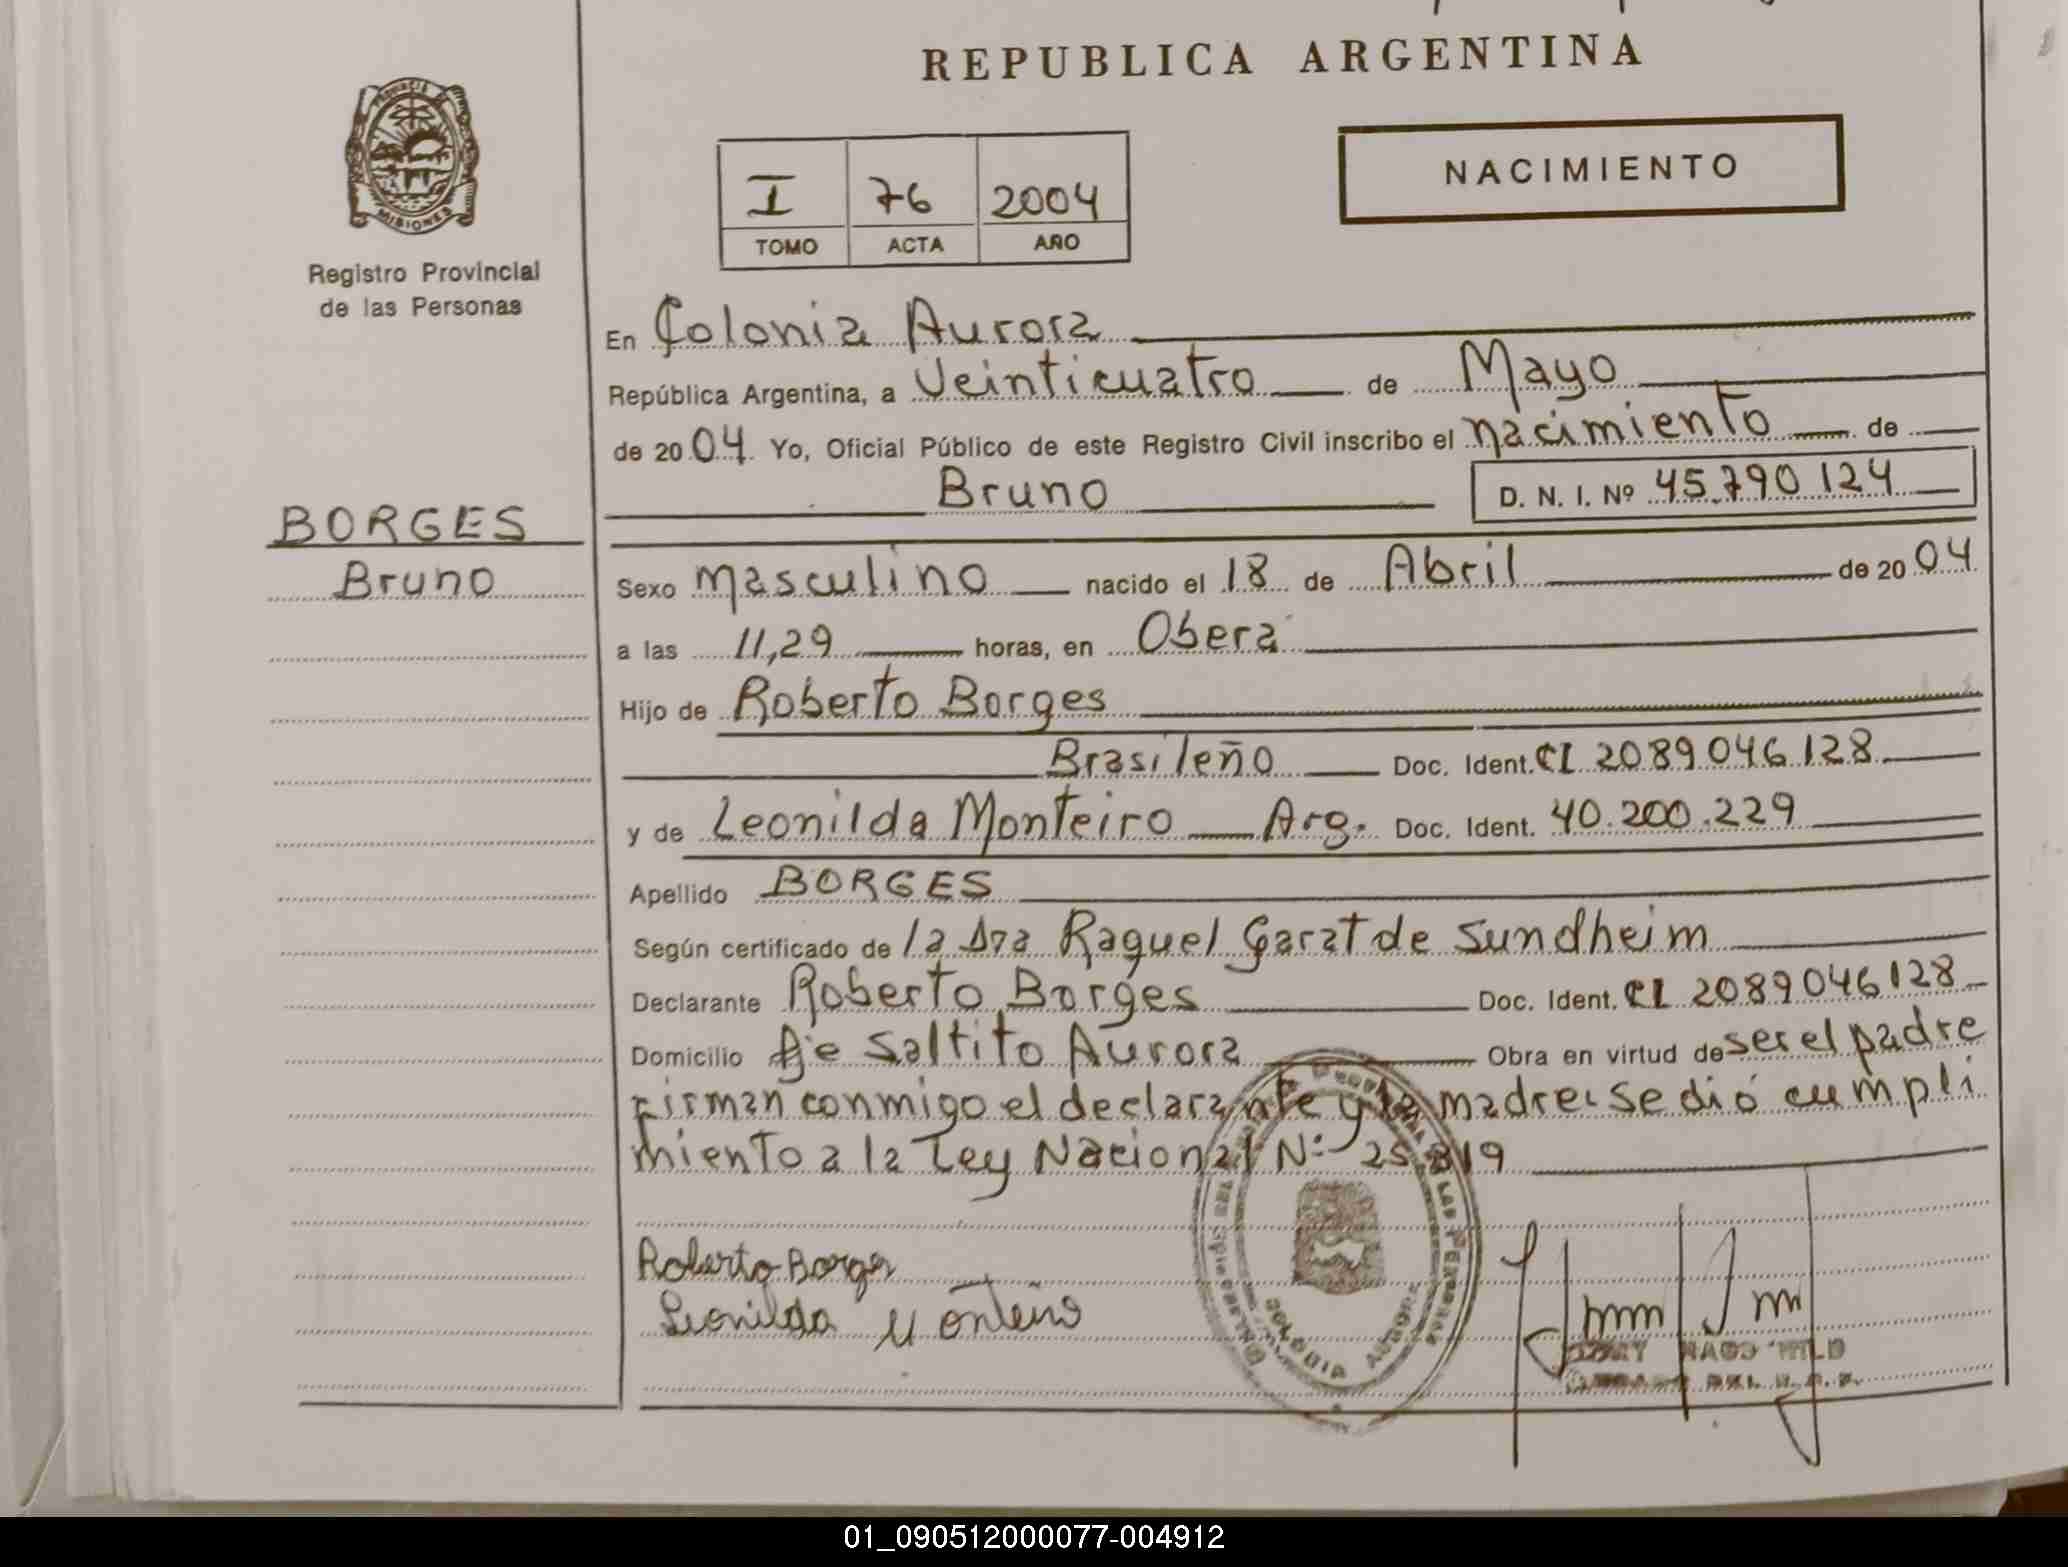 REPUBLICA ARGENTINA
PROVINCIA DE
MISIONES
Registro Provincial
de las Personas
I 76 2004
TOMO ACTA AÑO
NACIMIENTO
En Colonia Aurora
República Argentina, a Veinticuatro de Mayo
de 2004 Yo, Oficial Público de este Registro Civil inscribo el nacimiento de
Bruno D. N. I. Nº 45.790 124
BORGES
Bruno
Sexo masculino nacido el 18 de Abril de 2004
a las 11,29 horas, en Oberá
Hijo de Roberto Borges
Brasileño Doc. Ident. CI 2089046128
y de Leonilda Monteiro Arg. Doc. Ident. 40.200.229
Apellido BORGES
Según certificado de la Dra Raquel Garat de Sundheim
Declarante Roberto Borges Doc. Ident. CI 2089046128
Domicilio Aº Saltito Aurora Obra en virtud de ser el padre
firman conmigo el declarante y la madre: se dió cumpli
miento a la Ley Nacional Nº 25819
Roberto Borges
Leonilda Monteiro
COLONIA AURORA
01_090512000077-004912